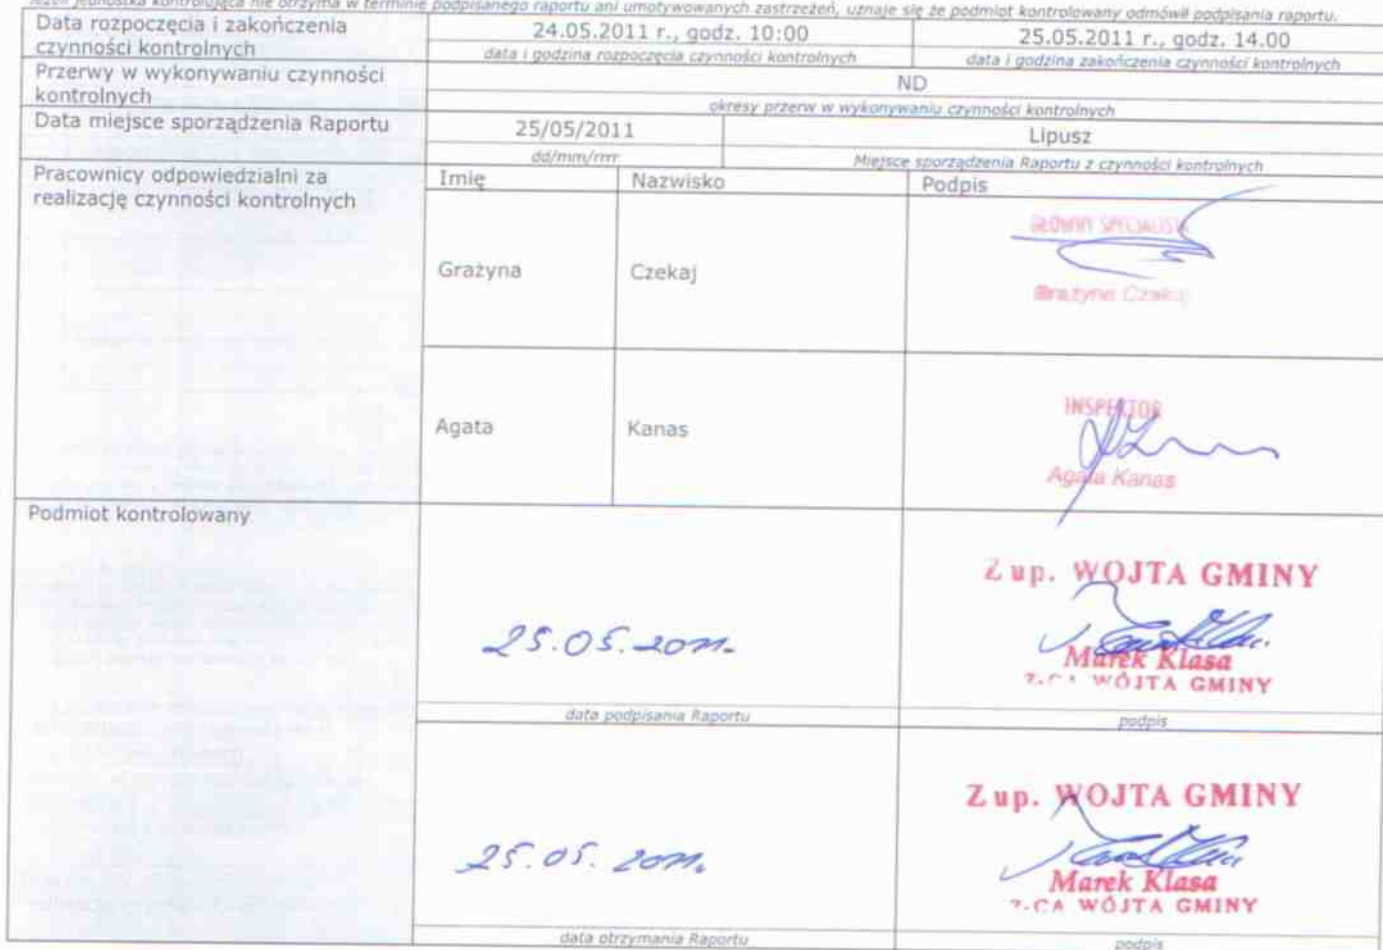 Jeżeli jednostka kontrolująca nie otrzyma w terminie podpisanego raportu ani umotywowanych zastrzeżeń, uznaje się że podmiot kontrolowany odmówił podpisania raportu.
Data rozpoczęcia i zakończenia czynności kontrolnych
24.05.2011 r., godz. 10:00
25.05.2011 r., godz. 14.00
data i godzina rozpoczęcia czynności kontrolnych
data i godzina zakończenia czynności kontrolnych
Przerwy w wykonywaniu czynności kontrolnych
ND
okresy przerw w wykonywaniu czynności kontrolnych
Data miejsce sporządzenia Raportu
25/05/2011
Lipusz
dd/mm/rrrr
Miejsce sporządzenia Raportu z czynności kontrolnych
Pracownicy odpowiedzialni za
realizację czynności kontrolnych
Imię
Nazwisko
Podpis
Grażyna
Czekaj
GŁÓWNY SPECJALISTA
Grażyna Czekaj
Agata
Kanas
INSPEKTOR
Agata Kanas
Podmiot kontrolowany
25.05.2011.
Z up. WÓJTA GMINY
Marek Klasa
Z-CA WÓJTA GMINY
data podpisania Raportu
podpis
25.05.2011.
Z up. WÓJTA GMINY
Marek Klasa
Z-CA WÓJTA GMINY
data otrzymania Raportu
podpis